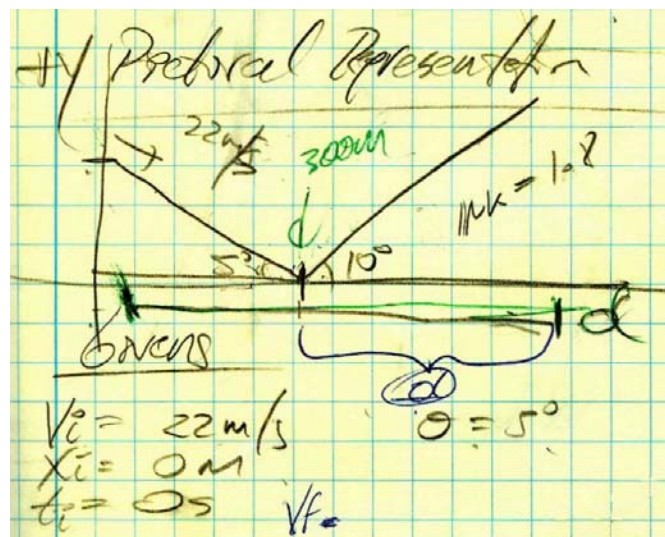 +y Pictorial Representation
22 m/s
300m
μk = 1.8
5° 10°
d
Givens
Vi = 22 m/s θ = 5°
Xi = 0 M
ti = 0s Vf =